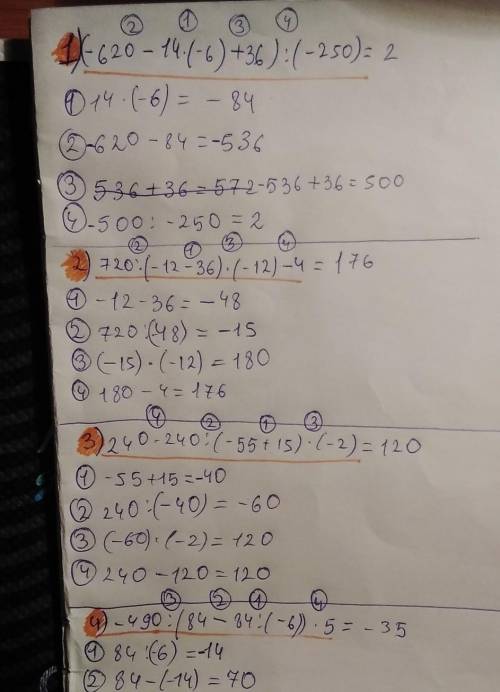 ② ① ③ ④
1) (-620 - 14·(-6) +36) : (-250) = 2
① 14 · (-6) = - 84
② -620 - 84 = -536
③ 536 + 36 = 572 -536 + 36 = 500
④ -500 : -250 = 2
② ① ③ ④
2) 720:(-12-36)·(-12)-4 = 176
① -12-36 = -48
② 720:(-48) = -15
③ (-15)·(-12) = 180
④ 180 - 4 = 176
④ ② ① ③
3) 240-240:(-55+15)·(-2) = 120
① -55+15=-40
② 240:(-40) = -60
③ (-60)·(-2) = 120
④ 240 - 120 = 120
③ ② ① ④
4) -490:(84-84:(-6))·5 = -35
① 84:(-6) = -14
② 84-(-14) = 70